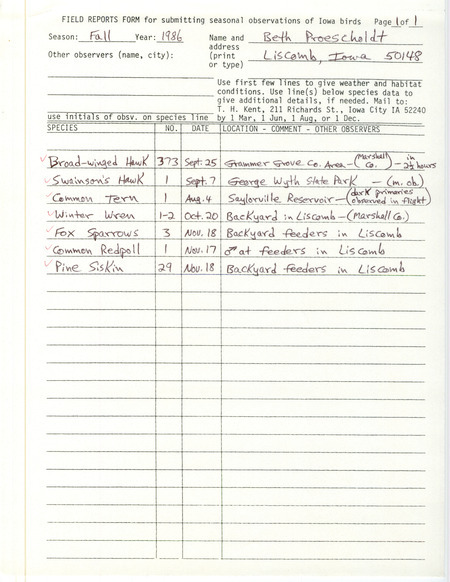 FIELD REPORTS FORM for submitting seasonal observations of Iowa birds Page 1 of 1
Season: Fall Year: 1986 Name and address (print or type) Beth Proescholdt
Liscomb, Iowa 50148
Other observers (name, city):
Use first few lines to give weather and habitat
conditions. Use line(s) below species data to
give additional details, if needed. Mail to:
T. H. Kent, 211 Richards St., Iowa City IA 52240
use initials of obsv. on species line by 1 Mar, 1 Jun, 1 Aug, or 1 Dec.
SPECIES NO. DATE LOCATION - COMMENT - OTHER OBSERVERS
Broad-winged Hawk 373 Sept. 25 Grammer Grove Co. Area - (Marshall Co.) - in 2½ hours
Swainson's Hawk 1 Sept. 7 George Wyth State Park - (m. ob.)
Common Tern 1 Aug. 4 Saylorville Reservoir - (dark primaries observed in flight)
Winter Wren 1-2 Oct. 20 Backyard in Liscomb - (Marshall Co.)
Fox Sparrows 3 Nov. 18 Backyard feeders in Liscomb
Common Redpoll 1 Nov. 17 ♂ at feeders in Liscomb
Pine Siskin 29 Nov. 18 Backyard feeders in Liscomb